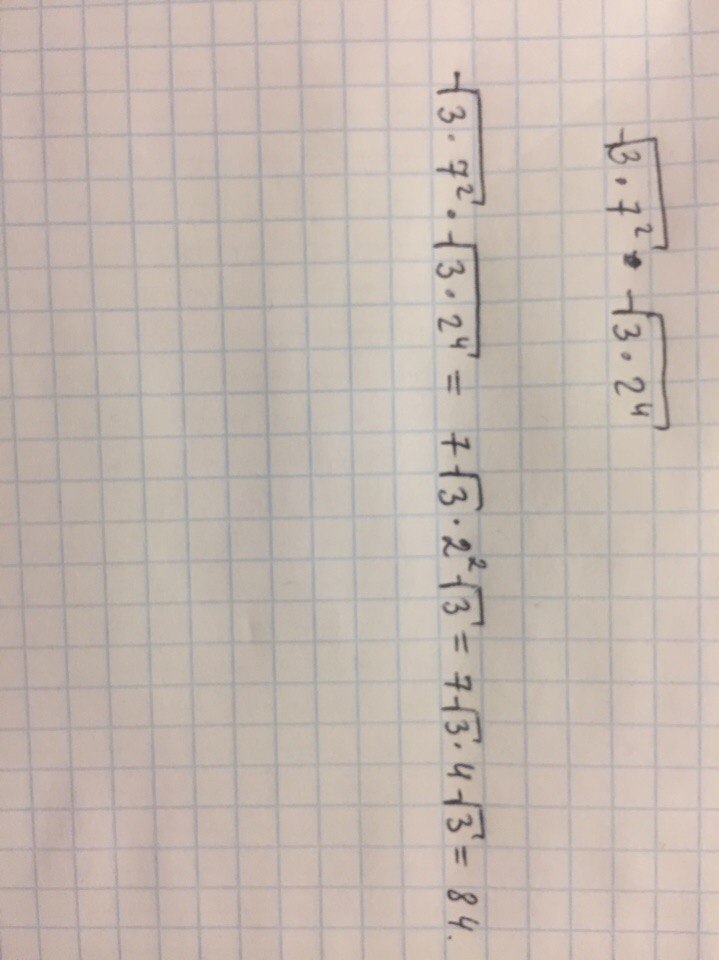 √(3·7²) · √(3·2⁴)
√(3·7²) · √(3·2⁴) = 7√3 · 2²√3 = 7√3 · 4√3 = 84.